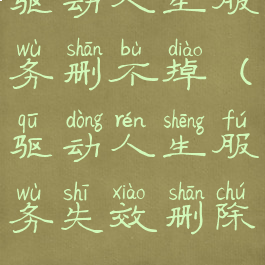 驱动人生服
wù shān bù diào
务删不掉（
qū dòng rén shēng fú
驱动人生服
wù shī xiào shān chú
务失效删除